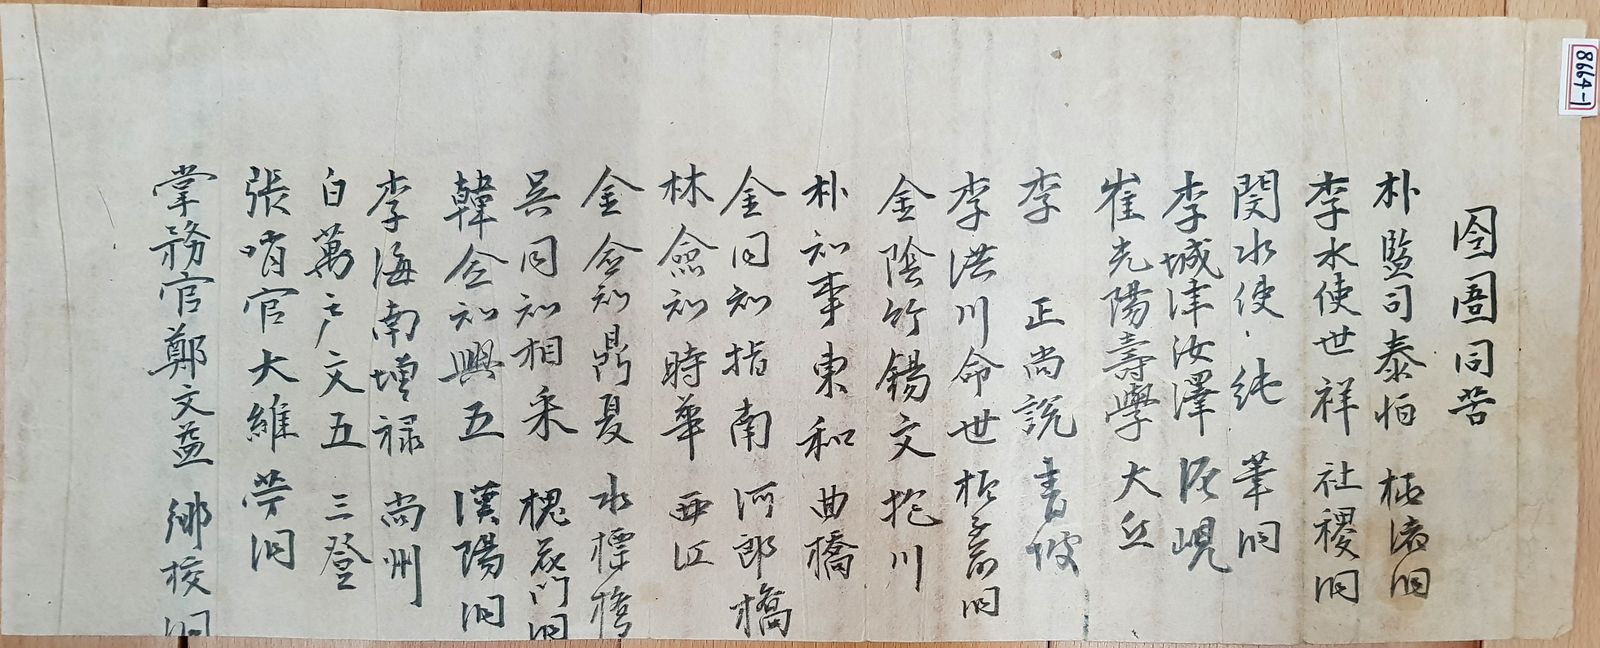 囹圄同苦
朴監司泰恒 枯洞
李水使世祥 社稷洞
閔水使 純 筆洞
李城津汝澤 泥峴
崔光陽壽學 大丘
李 正尚說 青坡
李洪川命世 洞
金陰竹錫文 抱川
朴知事東和 曲橋
金同知指南 河郎橋
林僉知時華 西江
金僉知鼎夏 水標橋
吳同知相采 槐花門洞
韓僉知興五 漢陽洞
李海南增祿 尚州
白萬戶文五 三登
張哨官大維 芋洞
掌務官鄭文益 鄉校洞
8664-1